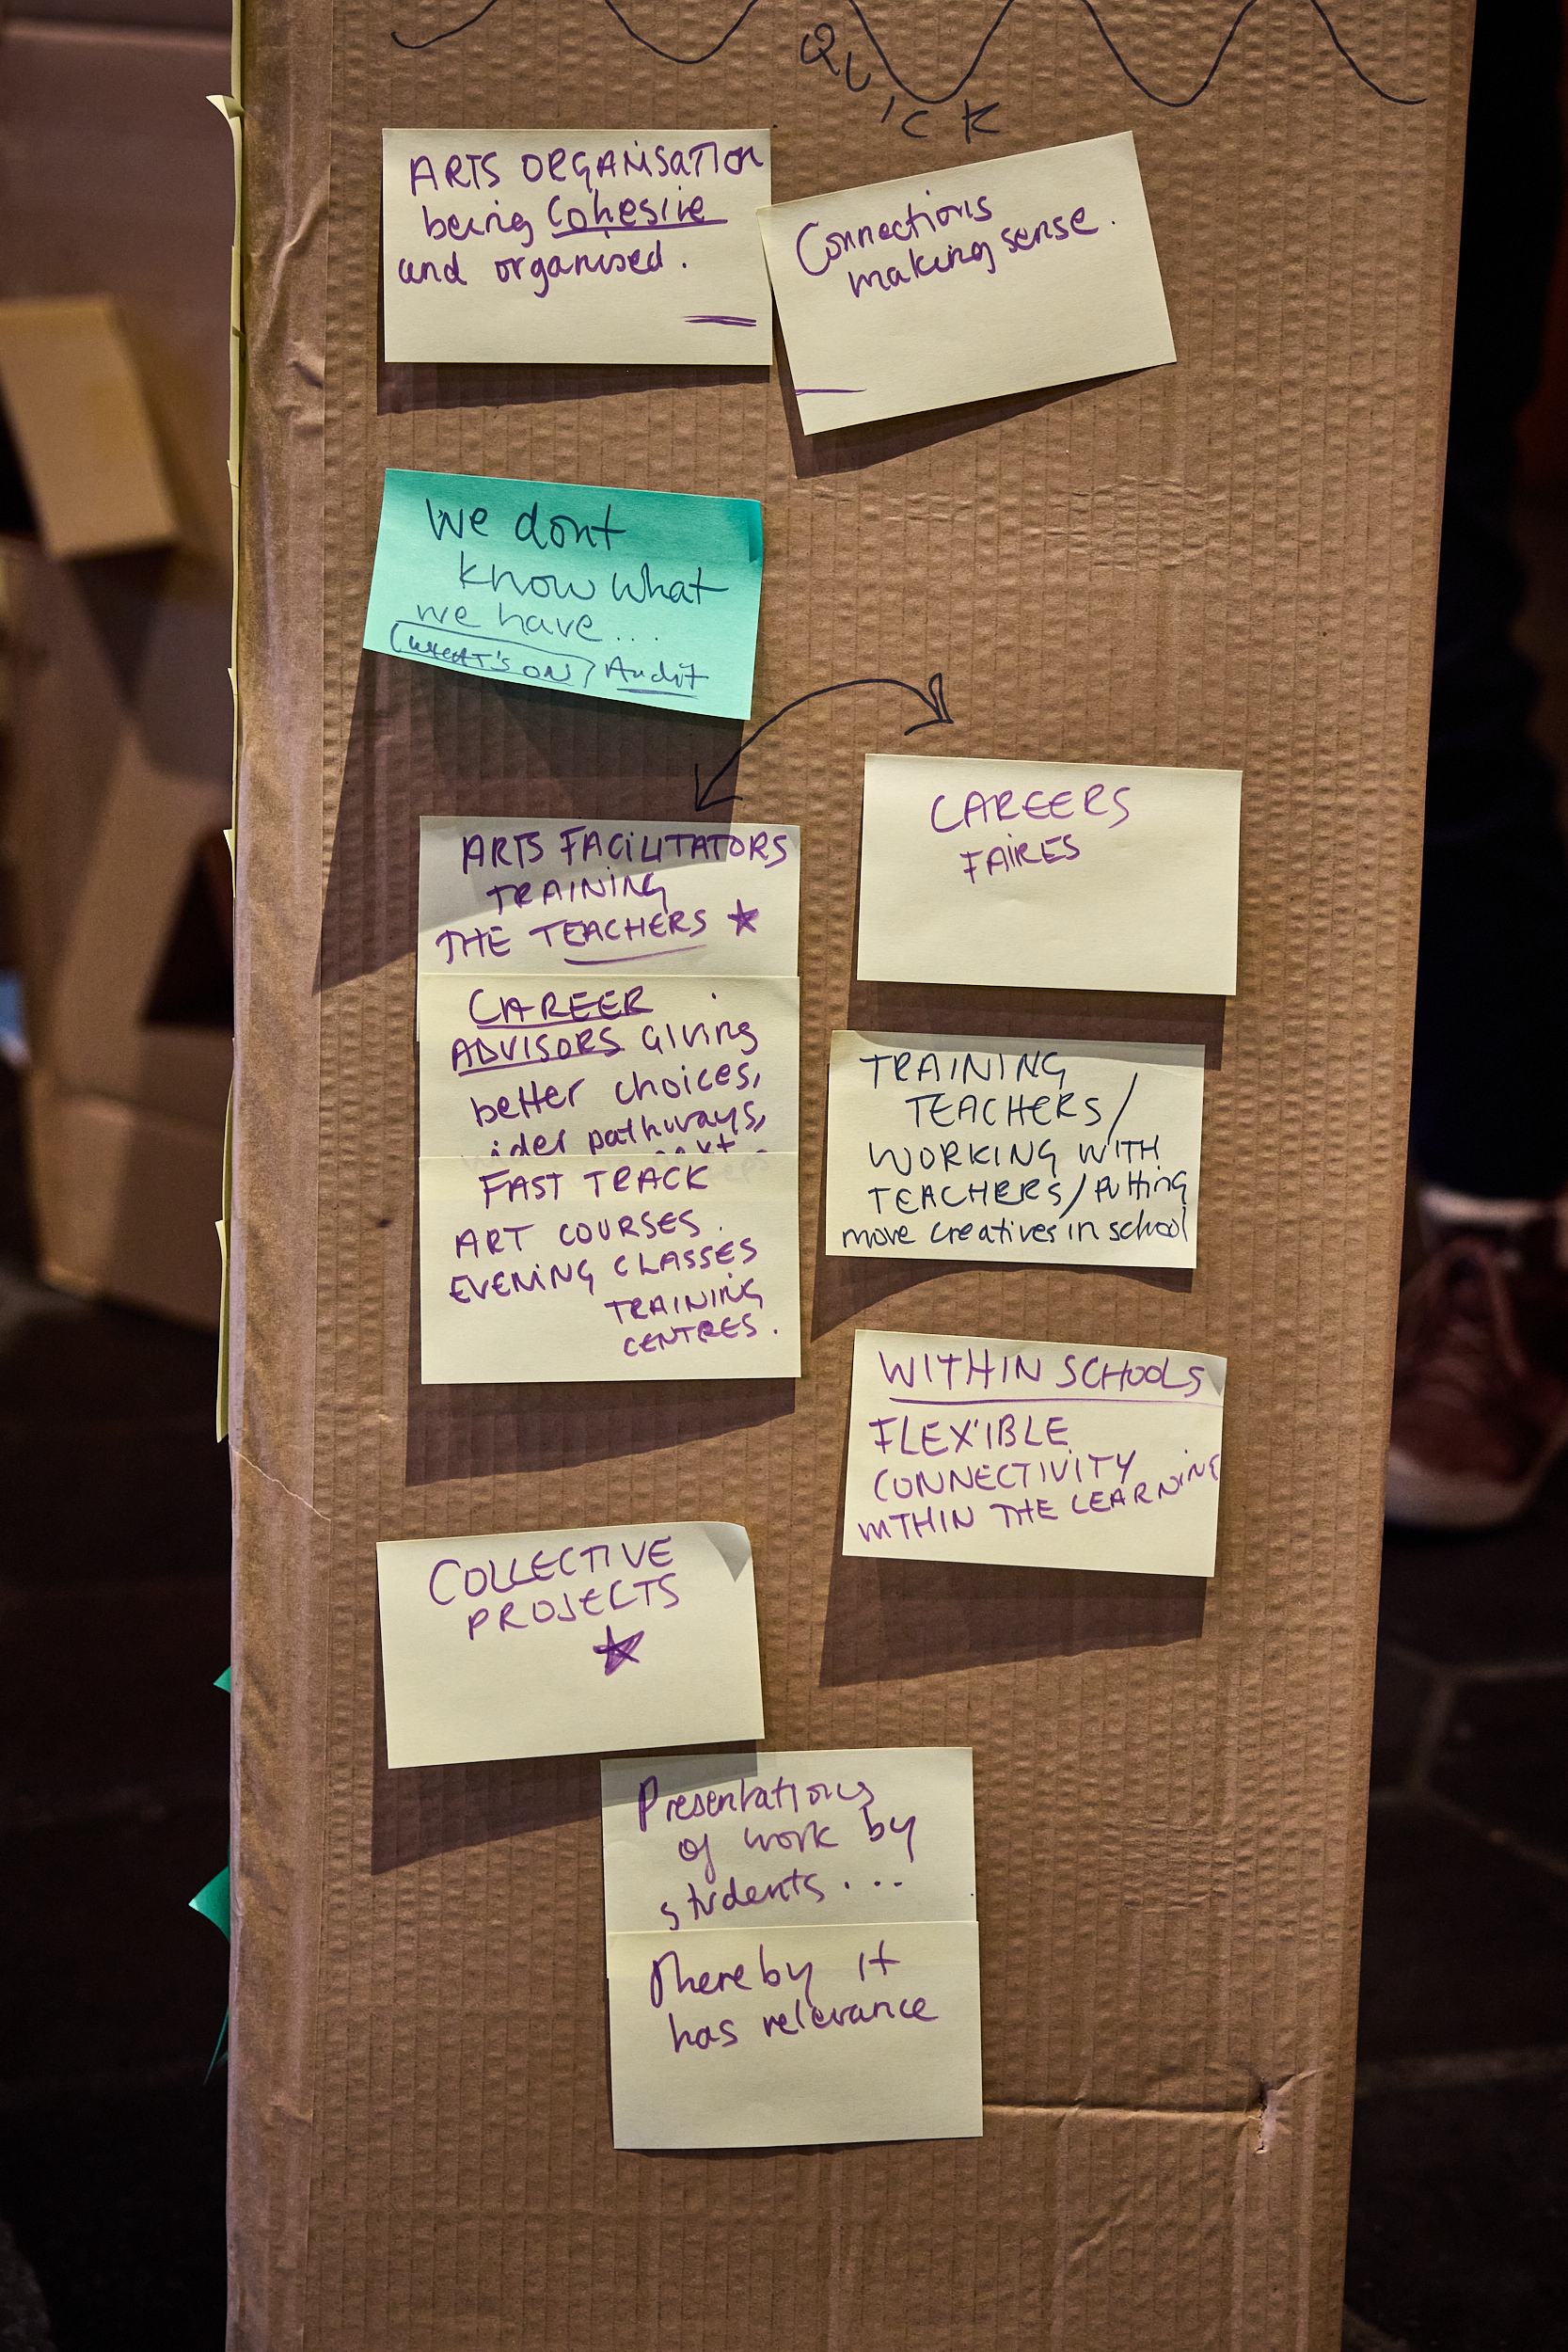 QUICK
ARTS ORGANISATION
being Cohesive
and organised.
Connections
making sense.
We dont
know what
we have...
(WHAT'S ON) Audit
ARTS FACILITATORS
TRAINING
THE TEACHERS
CAREER
ADVISORS GIVING
better choices,
wider pathways,
FAST TRACK
ART COURSES.
EVENING CLASSES
TRAINING
CENTRES.
CAREERS
FAIRES
TRAINING
TEACHERS/
WORKING WITH
TEACHERS/putting
more creatives in school
WITHIN SCHOOLS
FLEXIBLE
CONNECTIVITY
WITHIN THE LEARNING
COLLECTIVE
PROJECTS
Presentations
of work by
students...
Thereby it
has relevance